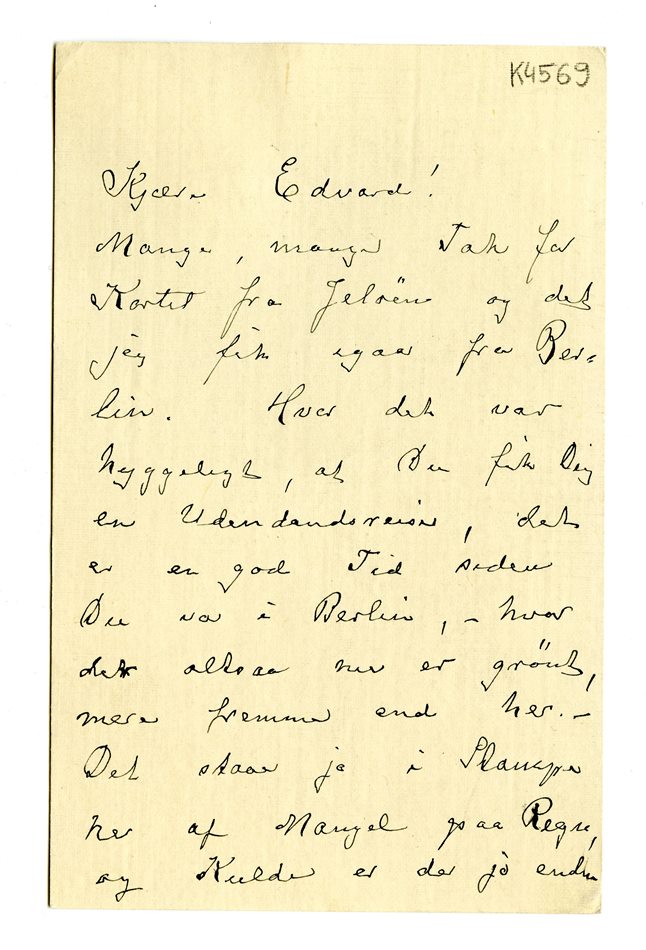 K4569
Kjære Edvard!
Mange, mange Tak for
Kortet fra Jelöen og det
jeg fik igaar fra Ber=
lin. Hvor det var
hyggeligt, at Du fik Dig
en Udendandsreise, det
er en god Tid siden
Du va i Berlin, – hvor
det altsaa nu er grönt,
mere fremme end her. –
Det staar jo i
her af Mangel paa Regn,
og Kulde er der jo endnu